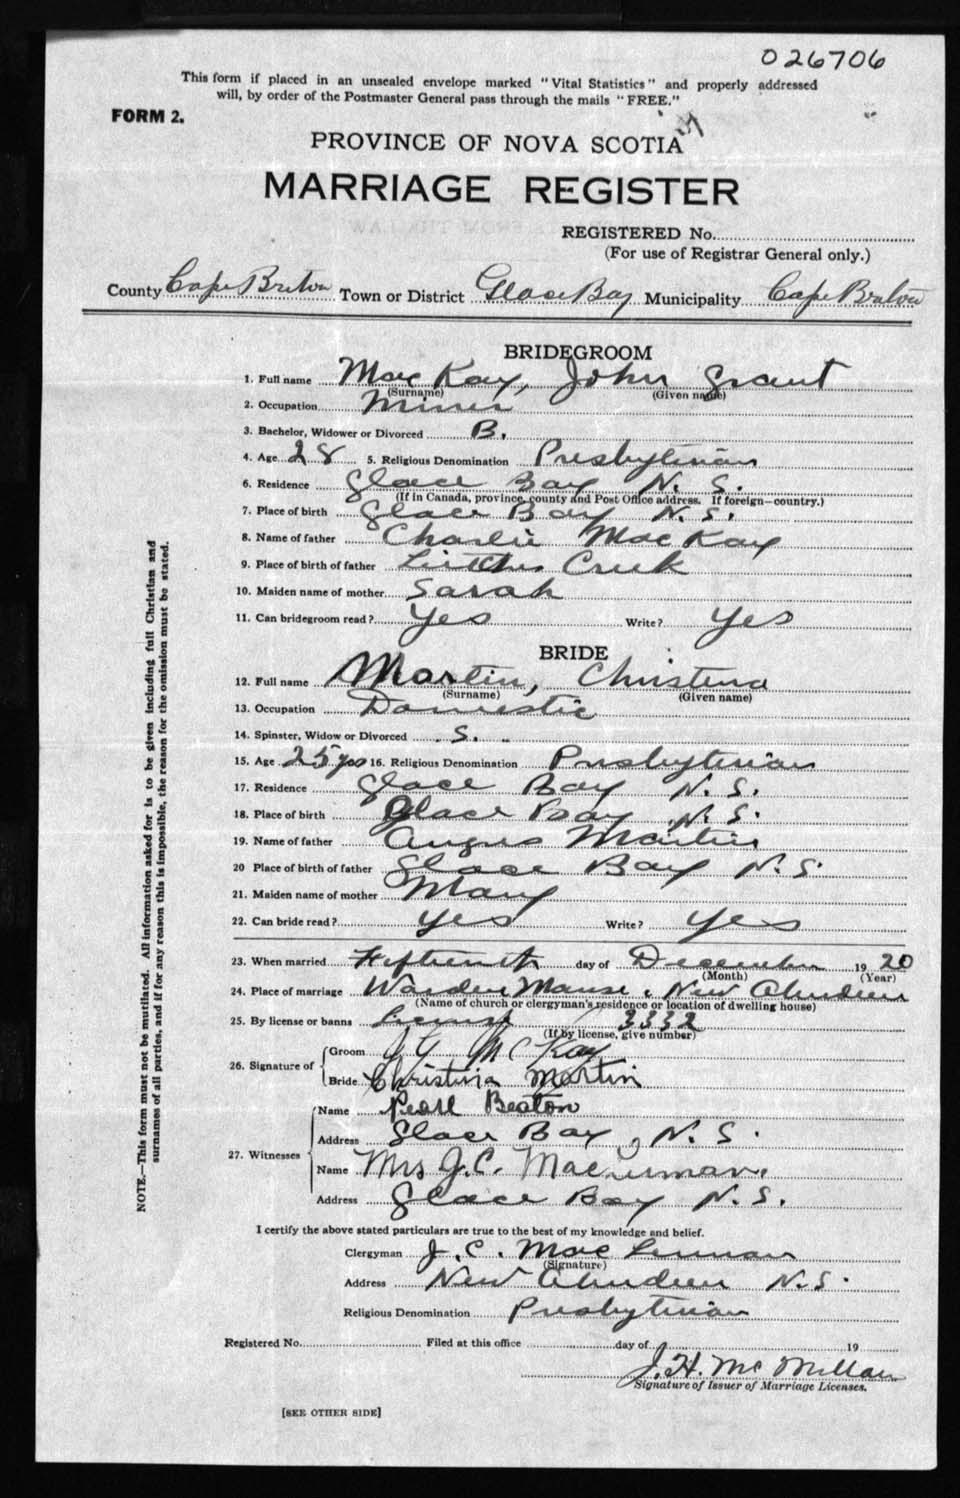 026706
This form if placed in an unsealed envelope marked "Vital Statistics" and properly addressed
will, by order of the Postmaster General pass through the mails "FREE."
FORM 2.
PROVINCE OF NOVA SCOTIA
MARRIAGE REGISTER
REGISTERED No.
(For use of Registrar General only.)
County Cape Breton Town or District Glace Bay Municipality Cape Breton
BRIDEGROOM
1. Full name MacKay, John Grant
(Surname) (Given name)
2. Occupation Miner
3. Bachelor, Widower or Divorced B.
4. Age 28 5. Religious Denomination Presbyterian
6. Residence Glace Bay N. S.
(If in Canada, province, county and Post Office address. If foreign—country.)
7. Place of birth Glace Bay N. S.
8. Name of father Charlie MacKay
9. Place of birth of father Creek
10. Maiden name of mother Sarah
11. Can bridegroom read? Yes Write? Yes
BRIDE
12. Full name Martin, Christena
(Surname) (Given name)
13. Occupation Domestic
14. Spinster, Widow or Divorced S.
15. Age 25 yrs 16. Religious Denomination Presbyterian
17. Residence Glace Bay N. S.
18. Place of birth Glace Bay N. S.
19. Name of father Angus Martin
20 Place of birth of father Glace Bay N. S.
21. Maiden name of mother Mary
22. Can bride read? Yes Write? Yes
23. When married Fifteenth day of December 1920
(Month) (Year)
24. Place of marriage Warden Manse, New Aberdeen
(Name of church or clergyman's residence or location of dwelling house)
25. By license or banns License 3332
(If by license, give number)
26. Signature of Groom J G McKay
Bride Christina Martin
27. Witnesses Name Pearl Beaton
Address Glace Bay, N. S.
Name Mrs J. C. MacLennan
Address Glace Bay N. S.
I certify the above stated particulars are true to the best of my knowledge and belief.
Clergyman J. C. MacLennan
(Signature)
Address New Aberdeen N. S.
Religious Denomination Presbyterian
Registered No. Filed at this office day of 19
J. H. McMillan
Signature of Issuer of Marriage Licenses.
[SEE OTHER SIDE]
NOTE.—This form must not be mutilated. All information asked for is to be given including full Christian and
surnames of all parties, and if for any reason this is impossible, the reason for the omission must be stated.